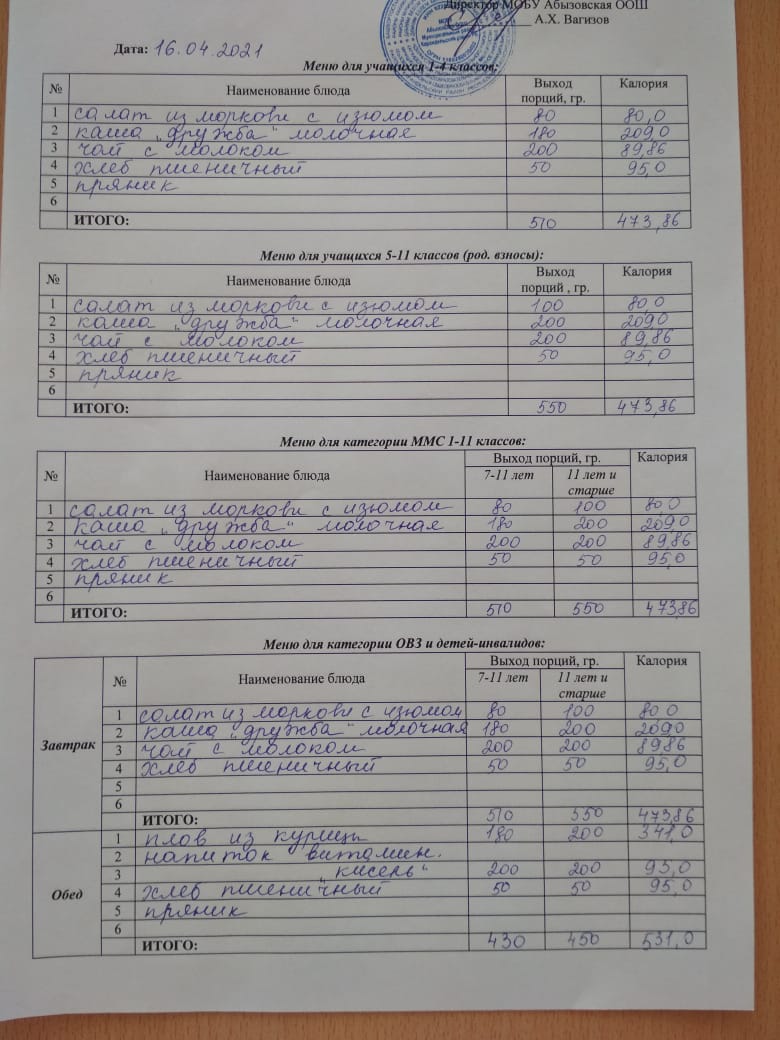 Директор МОБУ Абызовская ООШ
А.Х. Вагизов
Дата: 16.04.2021
Меню для учащихся 1-4 классов:
№ Наименование блюда Выход порций, гр. Калория
1 салат из моркови с изюмом 80 80,0
2 каша „дружба“ молочная 180 209,0
3 чай с молоком 200 89,86
4 хлеб пшеничный 50 95,0
5 пряник
6
ИТОГО: 510 473,86
Меню для учащихся 5-11 классов (род. взносы):
№ Наименование блюда Выход порций , гр. Калория
1 салат из моркови с изюмом 100 80,0
2 каша „дружба“ молочная 200 209,0
3 чай с молоком 200 89,86
4 хлеб пшеничный 50 95,0
5 пряник
6
ИТОГО: 550 473,86
Меню для категории ММС 1-11 классов:
№ Наименование блюда Выход порций, гр. Калория
7-11 лет 11 лет и старше
1 салат из моркови с изюмом 80 100 80,0
2 каша „дружба“ молочная 180 200 209,0
3 чай с молоком 200 200 89,86
4 хлеб пшеничный 50 50 95,0
5 пряник
6
ИТОГО: 510 550 473,86
Меню для категории ОВЗ и детей-инвалидов:
№ Наименование блюда Выход порций, гр. Калория
7-11 лет 11 лет и старше
Завтрак
1 салат из моркови с изюмом 80 100 80,0
2 каша „дружба“ молочная 180 200 209,0
3 чай с молоком 200 200 89,86
4 хлеб пшеничный 50 50 95,0
5
6
ИТОГО: 510 550 473,86
Обед
1 плов из курицы 180 200 341,0
2 напиток витамин.
3 „кисель“ 200 200 95,0
4 хлеб пшеничный 50 50 95,0
5 пряник
6
ИТОГО: 430 450 531,0